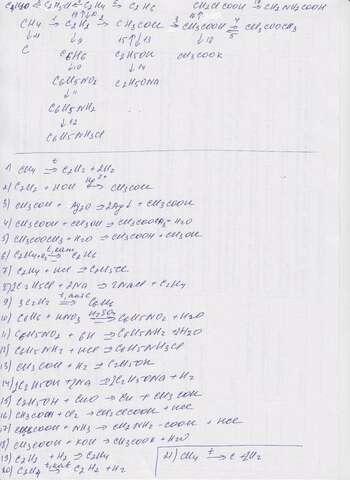 CH4 → C2H2 → CH3COH → CH3COOH → CH3COOCH3
C
C6H6 C2H5OH CH3COOK
C6H5NO2 C2H5ONa
C6H5NH2
C6H5NH3Cl
1) CH4 → C2H2 + 2H2
2) C2H2 + HOH → CH3COH
3) CH3COH + Ag2O → 2Ag↓ + CH3COOH
4) CH3COOH + CH3OH → CH3COOCH3 + H2O
5) CH3COOCH3 + H2O → CH3COOH + CH3OH
6) C2H4 + H2 → C2H6
7) C2H4 + HCl → C2H5Cl
8) 2C2H5Cl + 2Na → 2NaCl + C4H10
9) 3C2H2 → C6H6
10) C6H6 + HNO3 → C6H5NO2 + H2O
11) C6H5NO2 + 6H → C6H5NH2 + 2H2O
12) C6H5NH2 + HCl → C6H5NH3Cl
13) CH3COH + H2 → C2H5OH
14) 2C2H5OH + 2Na → 2C2H5ONa + H2
15) C2H5OH + CuO → Cu + CH3COH
16) CH3COOH + Cl2 → CH2ClCOOH + HCl
17) + NH3 → CH2NH2-COOH + HCl
18) CH3COOH + KOH → CH3COOK + H2O
19) C2H2 + H2 → C2H4
20) C2H4 → C2H2 + H2
21) CH4 → C + 2H2